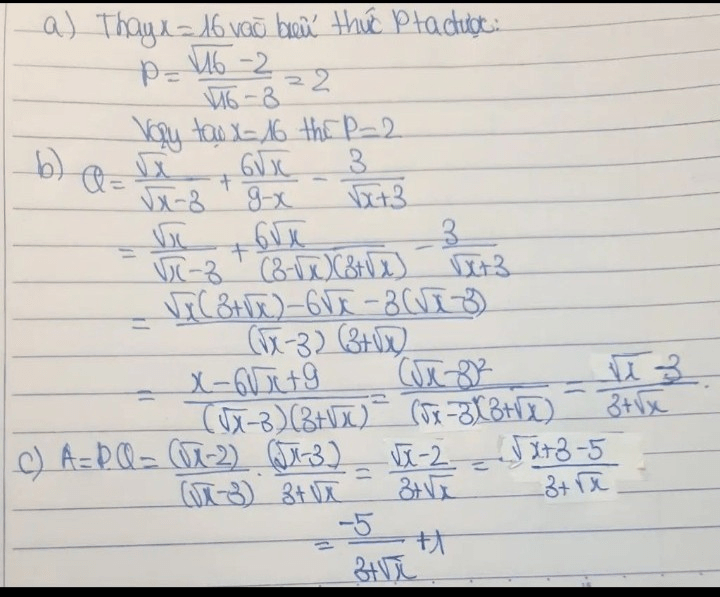 a) Thay x = 16 vào biểu thức P ta được:
P = (√16 - 2)/(√16 - 3) = 2
Vậy tại x = 16 thì P = 2
b) Q = √x/(√x - 3) + 6√x/(9 - x) - 3/(√x + 3)
= √x/(√x - 3) + 6√x/((3 - √x)(3 + √x)) - 3/(√x + 3)
= (√x(3 + √x) - 6√x - 3(√x - 3))/((√x - 3)(3 + √x))
= (x - 6√x + 9)/((√x - 3)(3 + √x)) = (√x - 3)²/((√x - 3)(3 + √x)) = (√x - 3)/(3 + √x).
c) A = PQ = (√x - 2)/(√x - 3) . (√x - 3)/(3 + √x) = (√x - 2)/(3 + √x) = (√x + 3 - 5)/(3 + √x)
= -5/(3 + √x) + 1